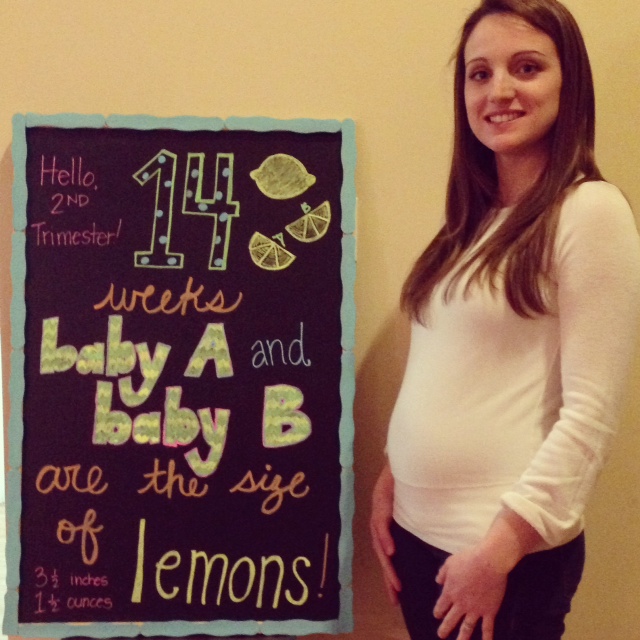 Hello,
2ND
Trimester!
14
weeks
baby A and
baby B
are the size
of
lemons!
3½ inches
1½ ounces
A
B